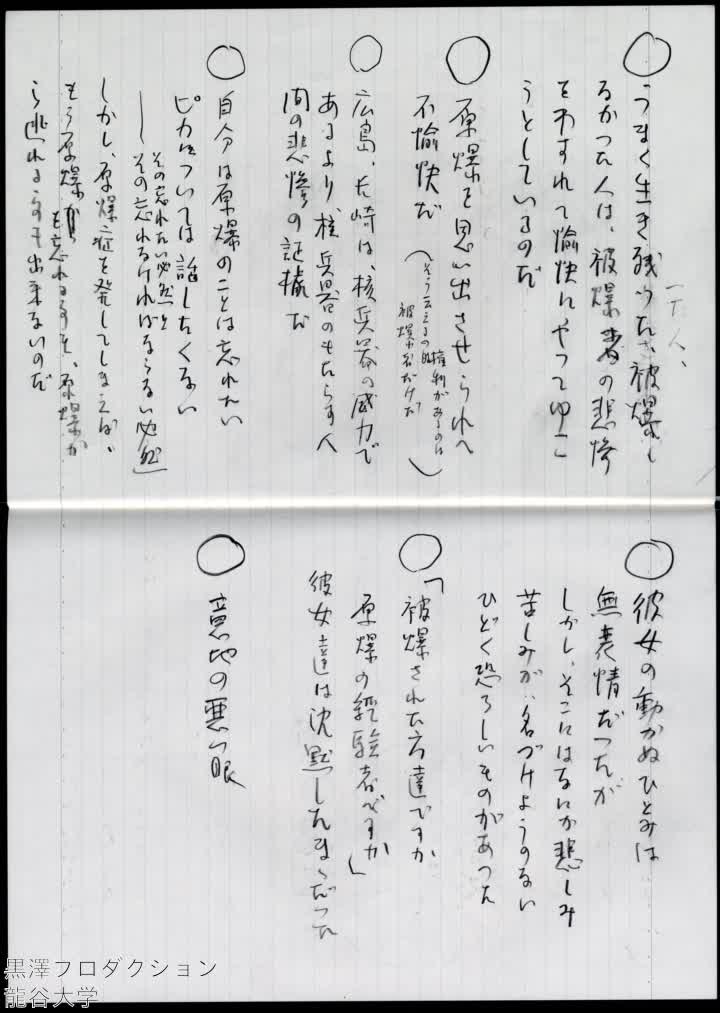 ○うまく生き残った、被爆し
一千人、
るかった人は、被爆者の悲惨
をわすれて愉快にやってゆこ
うとしているのだ
○原爆を思い出させられ
不愉快だ
(そう云える
権利があるのは
被爆者だけだ)
○広島、長崎は、核兵器の威力で
あるより核兵器のもたらす人
間の悲惨の証拠だ
○自分は原爆のことは忘れたい
ピカについては話したくない
その忘れたい必然と
―その忘れなければならない必然
しかし、原爆症を発してしまえば、
もう原爆を忘れる事も、原爆か
ら逃れる事も出来ないのだ
○彼女の動かぬひとみは
無表情だったが
しかし、そこにはなにか悲しみ
苦しみが、名づけようのない
ひどく恐ろしいものがあった
○「被爆された方達ですか
原爆の経験者ですか」
彼女達は沈黙したまゝだった
○意地の悪い眼
黒澤プロダクション
龍谷大学